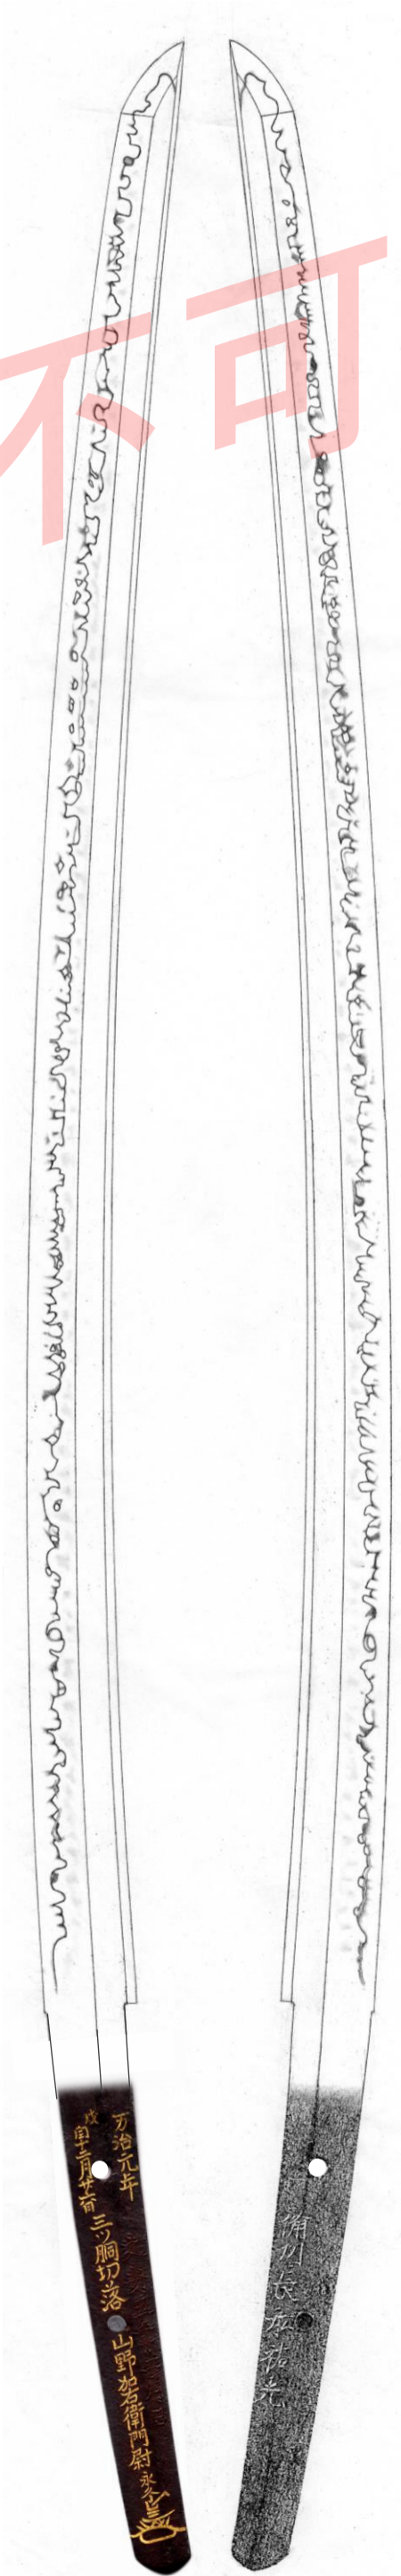 不可
万治元年
戌
閏十二月廿六日
三ツ胴切落
山野加右衛門尉
永久
備州長船祐光